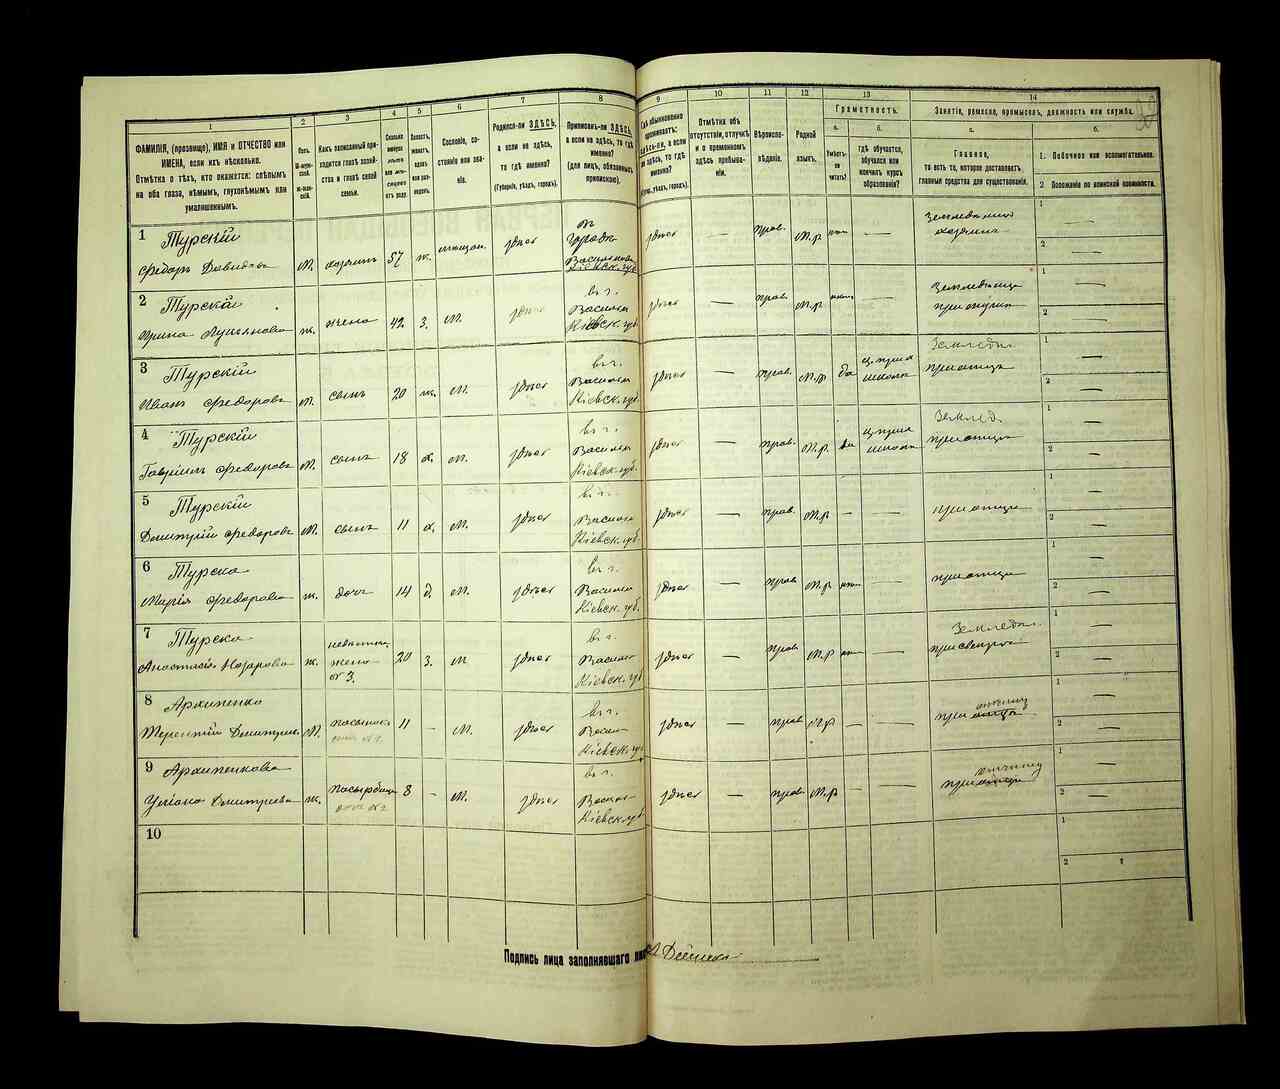 1
2
3
4
5
6
7
8
9
10
11
12
13
14
ФАМИЛІЯ, (прозвище), ИМЯ и ОТЧЕСТВО или
ИМЕНА, если ихъ нѣсколько.
Отмѣтка о тѣхъ, кто окажется: слѣпымъ
на оба глаза, нѣмымъ, глухонѣмымъ или
умалишеннымъ.
Полъ.
М-мужской.
Ж-женскій.
Какъ записанный приходится
главѣ хозяйства
и главѣ своей
семьи.
Сословіе, состояніе
или званіе.
Родился-ли ЗДѢСЬ,
а если не здѣсь,
то гдѣ именно?
(Губернія, уѣздъ, городъ).
Приписанъ-ли ЗДѢСЬ,
а если не здѣсь, то гдѣ
именно?
(для лицъ, обязанныхъ
припискою).
Гдѣ обыкновенно
проживаетъ:
здѣсь-ли, а если
не здѣсь, то гдѣ
именно?
(Губ., уѣздъ, городъ).
Отмѣтка объ
отсутствіи, отлучкѣ
и о временномъ
здѣсь пребываніи.
Вѣроисповѣданіе.
Родной
языкъ.
Грамотность.
а.
Умѣетъ-ли
читать?
б.
гдѣ обучается,
обучался или
кончилъ курсъ
образованія?
Занятіе, ремесло, промыселъ, должность или служба.
а.
Главное,
то есть то, которое доставляетъ
главныя средства для существованія.
б.
1. Побочное или вспомогательное.
2 Положеніе по воинской повинности.
1 Турскій
Федоръ Давидовъ М. хозяинъ 57 ж. мѣщан. здѣсь
въ
городѣ
Васильковѣ
Кіевск. губ.
здѣсь — прав. М.р. —
хозяинъ
1 —
2 —
2 Турская
Ирина Лукьянова ж. жена 42 з. М. здѣсь
въ г.
Василько
Кіевск. губ.
здѣсь — прав. М.р.
1 —
2 —
3 Турскій
Иванъ Федоровъ М. сынъ 20 ж. М. здѣсь
въ г.
Василько
Кіевск. губ.
здѣсь — прав. М.р. да
ц. прих
школа
Земледѣл.
при отцѣ
1 —
2 —
4 Турскій
Гавріилъ Федоровъ М. сынъ 18 х. М. здѣсь
въ г.
Василько
Кіевск. губ.
здѣсь — прав. М.р. да
ц. прих
школа
Землед.
при отцѣ
1 —
2 —
5 Турскій
Дмитрій Федоровъ М. сынъ 11 х. М. здѣсь
въ г.
Василько
Кіевск. губ.
здѣсь — прав. М.р — —
при отцѣ
1 —
2 —
6 Турска
Марія Федорова ж. дочь 14 д. М. здѣсь
въ г.
Василько
Кіевск. губ.
здѣсь — прав М.р —
при отцѣ
1 —
2 —
7 Турска
Анастасія Назарова ж.
невѣстка
жена
№ 3.
20 з. М здѣсь
въ г.
Василько
Кіевск. губ
здѣсь — прав. М.р —
Земледѣл.
при свекрѣ
1 —
2 —
8 Архипенко
Терентій Дмитріевъ М. пасынокъ 11 - М. здѣсь
въ г.
Васил
Кіевск. губ
здѣсь — прав М.р — —
отчиму
при отцѣ
1 —
2 —
9 Архипенкова
Уліана Дмитріева ж. 8 - М. здѣсь
въ г.
Василь
Кіевск. губ
здѣсь — прав М.р. — —
отчиму
при отцѣ
1 —
2 —
10
1
2
Подпись лица заполнявшаго